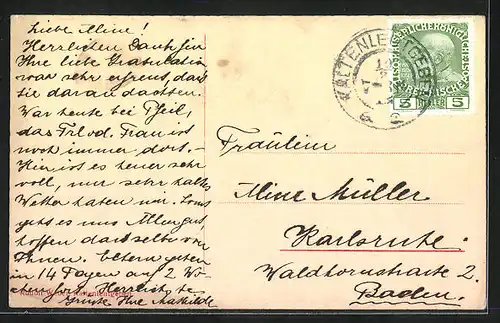 Liebe Mine!
Herzlichen Dank für
Ihre liebe Gratulation
war sehr erfreut, daß
sie daran dachten.
War heute bei Pfeil,
das Frl. vd. Frau ist
noch immer dort.-
Hier ist es heuer sehr
voll, nur sehr kaltes
Wetter haben wir. Sonst
geht es uns Allen gut
hoffen dasselbe von
Ihnen. Eltern gehen
in 14 Tagen auf 2 Wo-
chen fort. Herzlichste
Grüße Ihre Mathilde
KALTENLEUTGEBEN
5 HELLER 5
Fräulein
Mine Müller
Karlsruhe
Waldhornstrasse 2.
Baden.